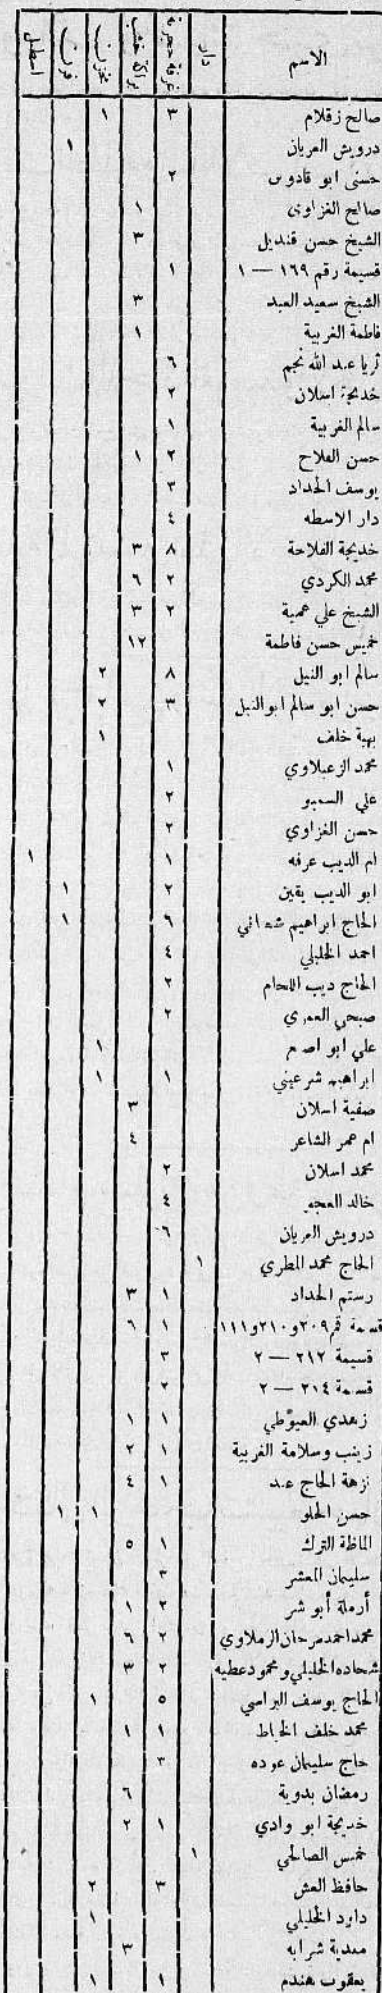 الاسم دار غرفة حجرية براكة خشب مخزن فرن اسطبل
صالح زقلام ٣ ١
درويش العريان ١
حسني ابو قادوس ٢
صالح الغزاوي ١
الشيخ حسن قنديل ٣
قسيمة رقم ١٦٩ — ١ ١
الشيخ سعيد العبد ٣
فاطمة الغربية ١
ثريا عبد الله نجم ٦
خديجة اسلان ٢
سالم الغربية ١
حسن الفلاح ٢ ١
يوسف الحداد ٣
دار الاسطه ٤
خديجة الفلاحة ٨ ٣
محمد الكردي ٢ ٦
الشيخ علي عمية ٢ ٣
خميس حسن فاطمة ١٢
سالم ابو النيل ٨ ٢
حسن ابو سالم ابو النيل ٣ ٢
بهية خلف ١
محمد الزعبلاوي ١
علي السمبو ٢
حسن الغزاوي ٢
ام الديب عرفه ١ ١
ابو الديب يقين ٢ ١
الحاج ابراهيم ٦ ١
احمد الخليلي ٤
الحاج ديب اللحام ٢
صبحي العمري ٢
علي ابو ١
ابراهيم شرعيني ١ ١
صفية اسلان ٣
ام عمر الشاعر ٤
محمد اسلان ٢
خالد العجو ٤
درويش العريان ٦
الحاج محمد المطري ١
رستم الحداد ١ ٣
قسيمة رقم ٢٠٩ و٢١٠ و١١١ ١ ٦
قسيمة ٢١٢ — ٢ ٣
قسيمة ٢١٤ — ٢ ٢
زهدي العيوطي ١ ١
زينب وسلامة الغربية ١ ٢
نزهة الحاج عبد ١ ٤
حسن الحلو ١ ١
الماظة الترك ١ ٥
سليمان المعشر ٣
أرملة أبو شر ٢ ١
محمد احمد سرحان الرملاوي ٢ ٦
شحاده الخليلي ومحمود عطيه ٢ ٣
الحاج يوسف البراسي ٥ ١
محمد خلف الخباط ١ ١
حاج سليمان عوده ٣
رمضان بدوية ٦
خديجة ابو وادي ١ ٢
خميس الصالحي ١
حافظ العش ٣ ٢
داود الخليلي ١
سعدية شرابه ٣
يعقوب هندم ١ ١